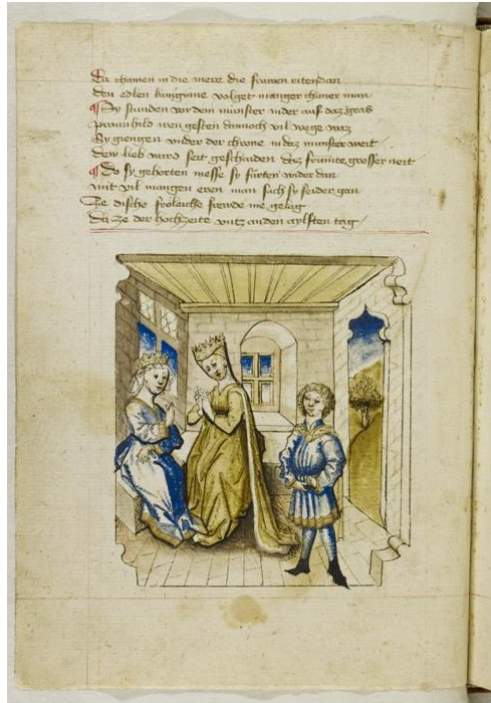 Da chamen in die mere die frawen riten dan
den edlen kunginne volget maniger chuner man
Sy stunden vor dem munster nider auf daz gras
praunhild iren gesten dannoch vil wege waz
Sy giengen vnder der chrone in daz munster weit
dew lieb ward seit geschaiden daz frumte grosser neit
Do sy gehorten messe sy fürten wider dan
mit vil mangen eren man sach sy seider gan
Ze dische fröleiche frewde nie gelag
Da ze der hochzeite vntz an den aylften tag